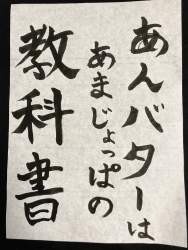 あんバターは
あまじょっぱの
教科書